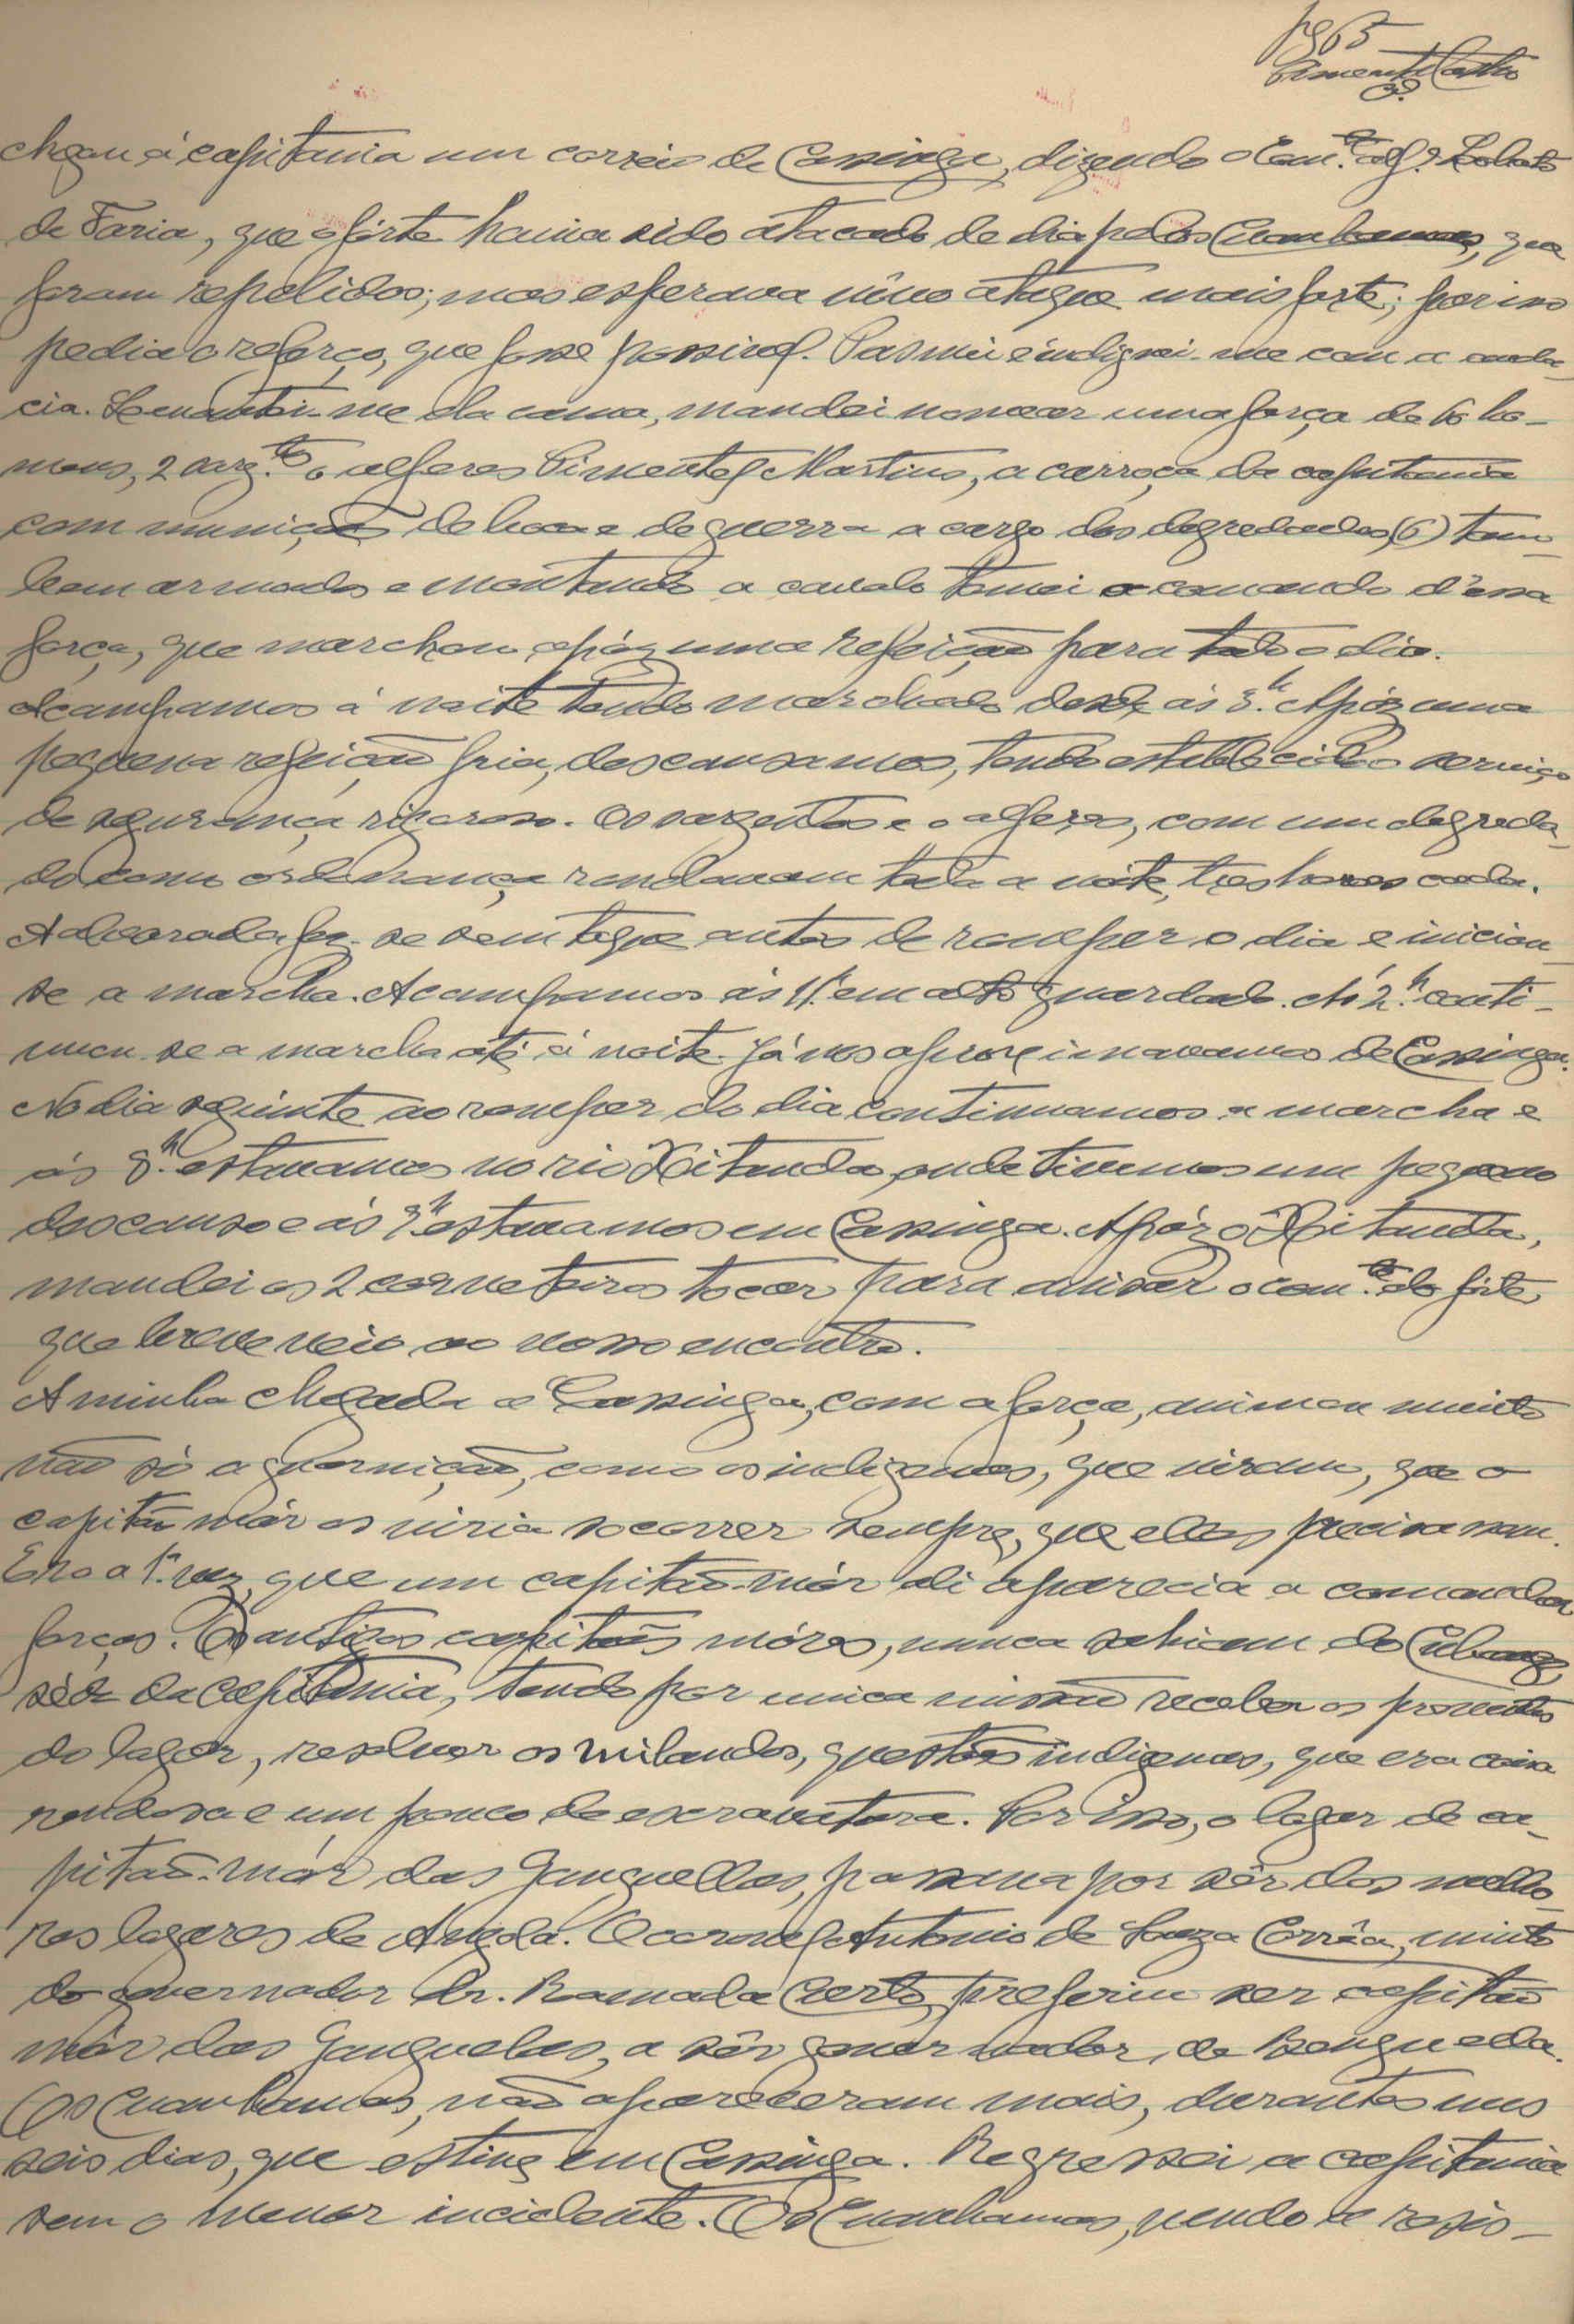 pg 65
chegou á capitania um correio de Cassinga, dizendo o Com.te alf.s Lobato
de Faria, que o fórte havia sido atacado de dia pelos Cuanhamas, que
foram repelidos; mas esperava nôvo ataque mais forte; por isso
pedia o reforço, que fosse possivel. Pasmei e indignei-me com a auda-
cia. Levantei-me da cama, mandei nomear uma força de 60 ho-
mens, 2 sarg.tos o alferes Pimentel Martins, a carroça da capitania
com munições de boca e de guerra a cargo dos degredados, (6) tam-
bem armados e montando a cavalo tomei o comando d'essa
força, que marchou, após uma refeição para todo o dia.
Acampamos á noite tendo marchado desde ás 3.h Apóz uma
pequena refeição fria, descansamos, tendo estabelecido o serviço
de segurança rigoroso. Os sargentos e o alferes, com um degreda-
do como ordenança rondavam toda a noite, tres horas cada.
A alvorada fez-se sem toque antes de romper o dia e iniciou-
se a marcha. Acampamos ás 11.h em alto guardado. Ás 2.h conti-
nuou-se a marcha até á noite. Já nos aproximavamos de Cassinga.
No dia seguinte ao romper do dia continuamos a marcha e
ás 8.h estavamos no rio Xitanda, onde tivemos um pequeno
descanso e ás 9.h estavamos em Cassinga. Apóz o Xitanda,
mandei os 2 corneteiros tocar para avisar o com.te do fórte,
que breve veio ao nosso encontro.
A minha chegada a Cassinga, com a força, animou muito
não só a guarnição, como os indigenas, que viram, que o
capitão mór os viria socorrer sempre, que eles precisassem.
Era a 1.ª vez, que um capitão-mór ali aparecia a comandar
forças. Os antigos capitães móres, nunca sahiam do Cubango,
séde da capitania, tendo por unica missão receber os proventos
do lugar, resolver os milandos, questões indigenas, que era coisa
rendosa e um pouco de escravatura. Por isso, o lugar de ca-
pitão-mór das Ganguellas, passava por sêr dos melho-
res lugares de Angola. O coronel Antonio de Souza Corrêa, muito
do governador Dr. Ramada Curto, preferiu ser capitão
mór das Ganguelas, a sêr governador, de Benguela.
Os Cuanhamas, não apareceram mais, durante uns
seis dias, que estive em Cassinga. Regressei a capitania
sem o menor incidente. Os Cuanhamas, vendo a resis-